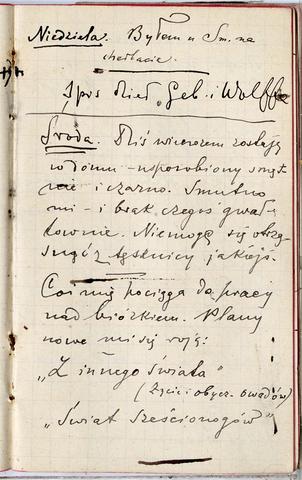 Niedziela. Byłem u Sm. na
herbacie.
Spis dzieł "Geb. i Wolffa
Środa. Dziś wieczorem zostaję
w domu - usposobiony smęt-
nie - i czarno. Smutno
mi - i brak czegoś gwał-
townie. Niemogę się otrzą-
snąć z tęsknicy jakiejś.
Coś mię pociąga do pracy
nad biórkiem. Plany
nowe mi się roją:
„Z innego świata"
(Życie i obycz. owadów)
„Świat Sześcionogów"